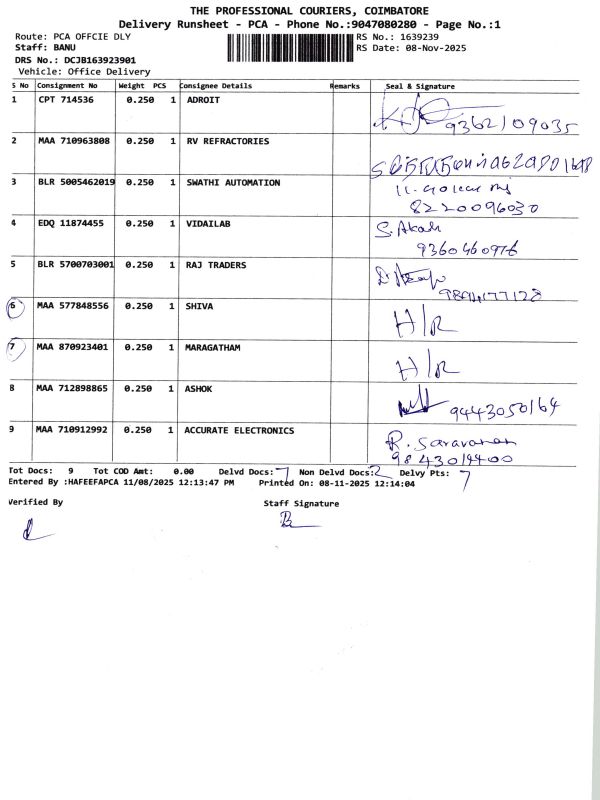 THE PROFESSIONAL COURIERS, COIMBATORE
Delivery Runsheet - PCA - Phone No.:9047080280 - Page No.:1
Route: PCA OFFCIE DLY RS No.: 1639239
Staff: BANU RS Date: 08-Nov-2025
DRS No.: DCJB163923901
Vehicle: Office Delivery
S No Consignment No Weight PCS Consignee Details Remarks Seal & Signature
1 CPT 714536 0.250 1 ADROIT
9362109035
2 MAA 710963808 0.250 1 RV REFRACTORIES
3 BLR 5005462019 0.250 1 SWATHI AUTOMATION
8220096030
4 EDQ 11874455 0.250 1 VIDAILAB S. Akash
9360460976
5 BLR 5700703001 0.250 1 RAJ TRADERS
6 MAA 577848556 0.250 1 SHIVA H/R
7 MAA 870923401 0.250 1 MARAGATHAM H/R
8 MAA 712898865 0.250 1 ASHOK 9443050164
9 MAA 710912992 0.250 1 ACCURATE ELECTRONICS R. Saravanan
9843014400
Tot Docs: 9 Tot COD Amt: 0.00 Delvd Docs: 7 Non Delvd Docs: 2 Delvy Pts: 7
Entered By :HAFEEFAPCA 11/08/2025 12:13:47 PM Printed On: 08-11-2025 12:14:04
Verified By Staff Signature